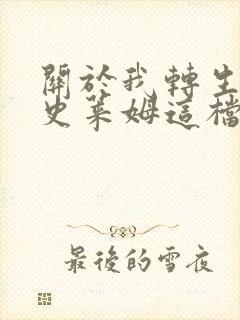 關於我轉生
史萊姆這檔
最後的雪夜